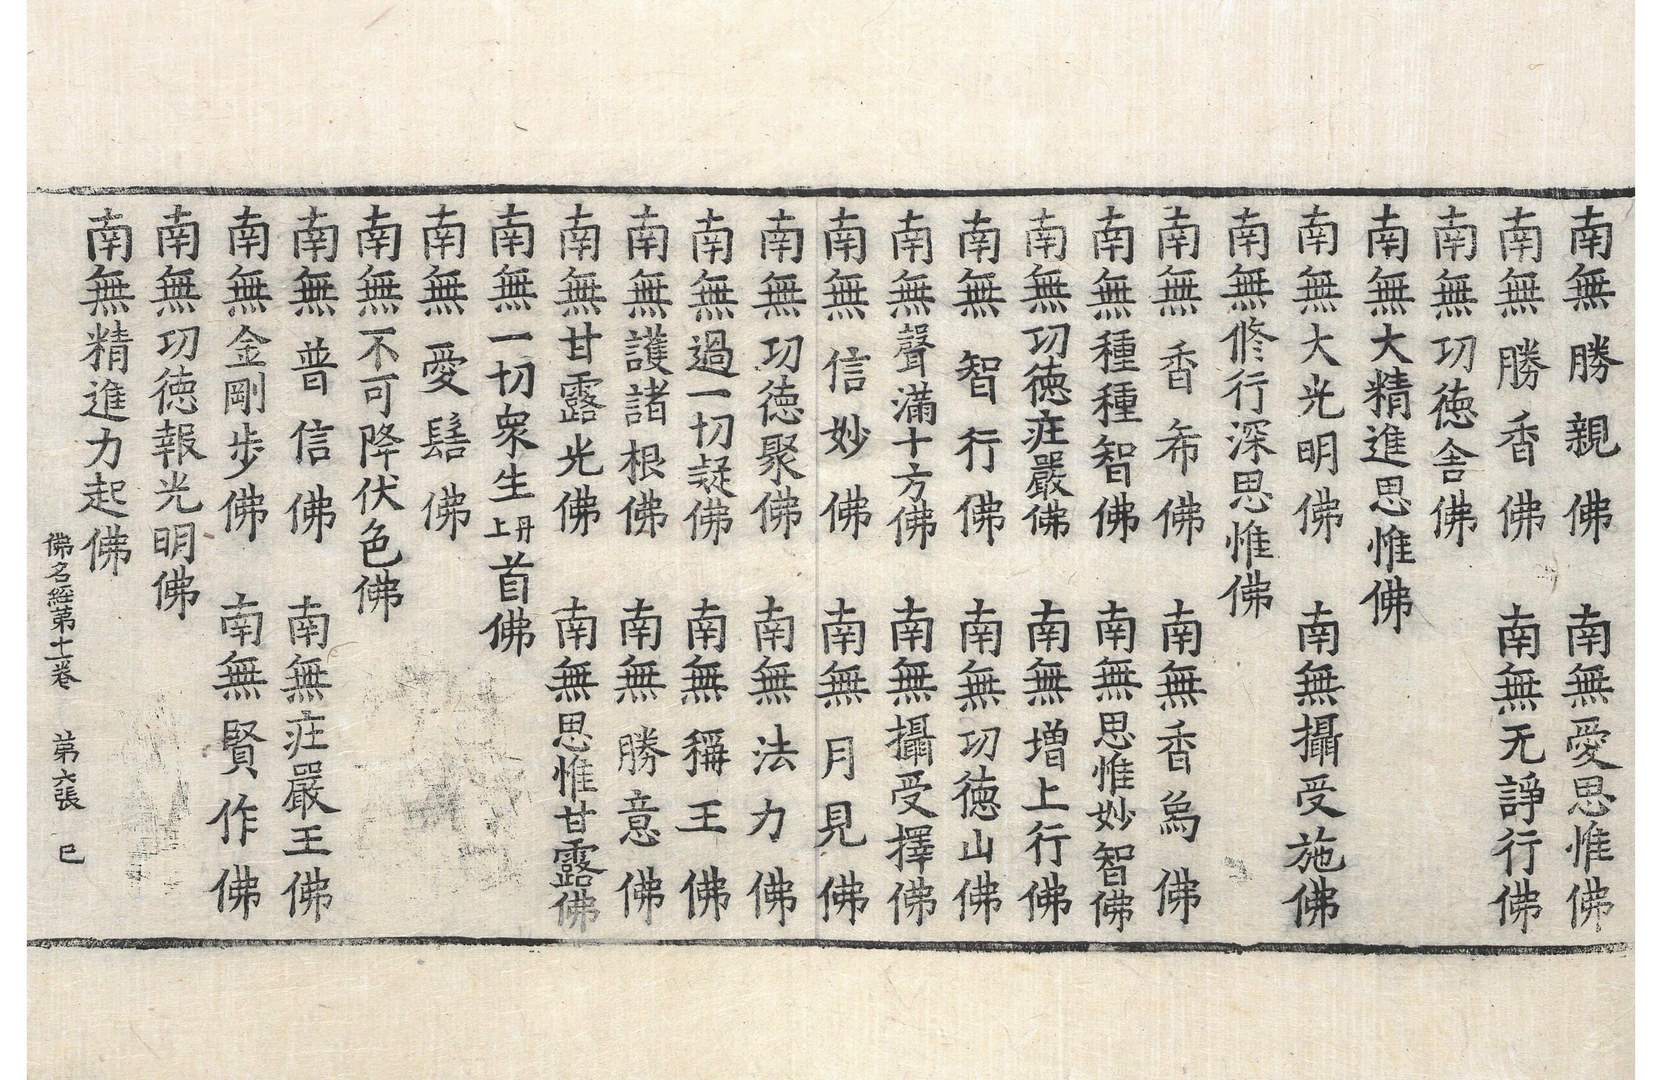 南無勝親佛 南無愛思惟佛
南無勝香佛 南無无諍行佛
南無功徳舎佛
南無大精進思惟佛
南無大光明佛 南無攝受施佛
南無修行深思惟佛
南無香希佛 南無香爲佛
南無種種智佛 南無思惟妙智佛
南無功徳庄嚴佛 南無增上行佛
南無智行佛 南無功徳山佛
南無聲滿十方佛 南無攝受擇佛
南無信妙佛 南無月見佛
南無功徳聚佛 南無法力佛
南無過一切疑佛 南無稱王佛
南無護諸根佛 南無勝意佛
南無甘露光佛 南無思惟甘露佛
南無一切衆生丹上首佛
南無愛髻佛
南無不可降伏色佛
南無普信佛 南無庄嚴王佛
南無金剛步佛 南無賢作佛
南無功徳報光明佛
南無精進力起佛
佛名經第十一卷 第六張 巳